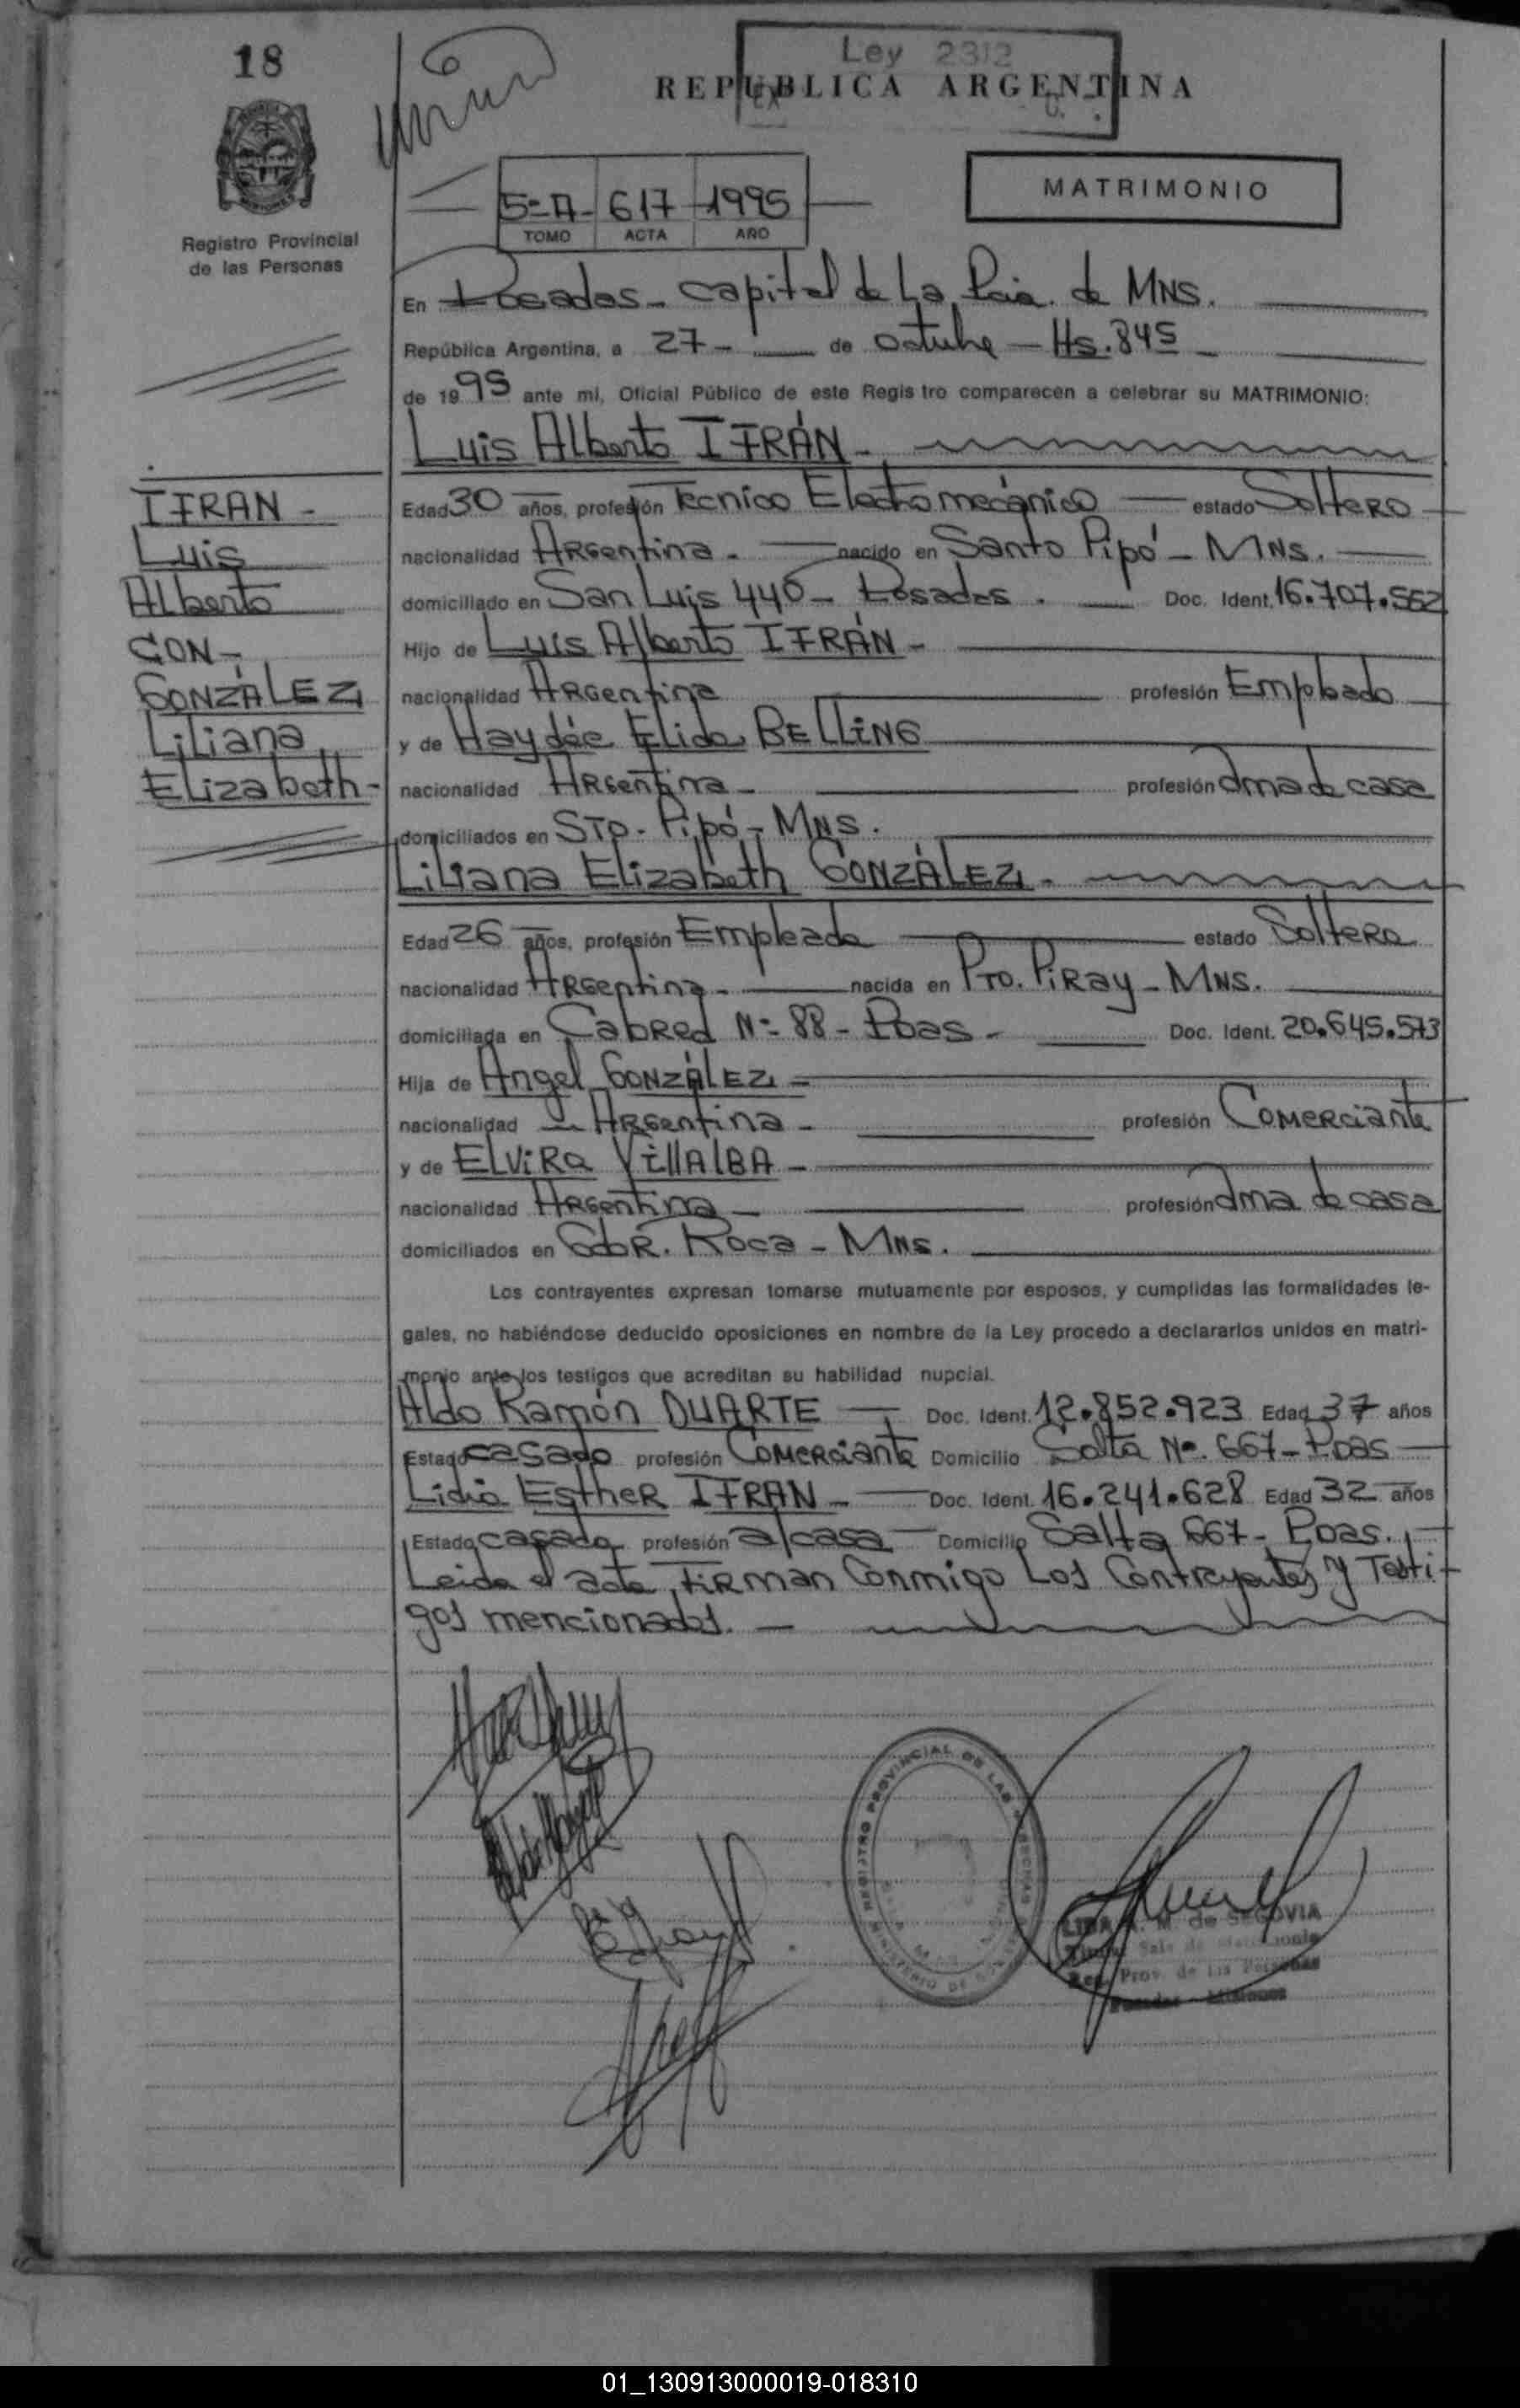 18
Ley 2312
REPUBLICA ARGENTINA
MATRIMONIO
5=A- 617 1995
TOMO ACTA AÑO
Registro Provincial
de las Personas
En Posadas - Capital de La Pcia. de MNS.
República Argentina, a 27 - de Octubre - Hs. 845
de 1995 ante mi, Oficial Público de este Registro comparecen a celebrar su MATRIMONIO:
Luis Alberto IFRÁN -
IFRAN -
Luis
Alberto
CON -
GONZÁLEZ
Liliana
Elizabeth -
Edad 30 años, profesión Tecnico Electromecánico estado Soltero
nacionalidad Argentina - nacido en Santo Pipó - MNS.
domiciliado en San Luis 440 - Posadas. Doc. Ident. 16.707.562
Hijo de Luis Alberto IFRÁN -
nacionalidad Argentina profesión Empleado
y de Haydée Elida BELLING
nacionalidad Argentina - profesión ama de casa
domiciliados en STO. Pipó - MNS.
Liliana Elizabeth GONZÁLEZ -
Edad 26 años, profesión Empleada estado Soltera
nacionalidad Argentina - nacida en PTO. PiRay - MNS.
domiciliada en Cabred Nº 88 - Pdas - Doc. Ident. 20.645.573
Hija de Angel GONZÁLEZ -
nacionalidad Argentina - profesión Comerciante
y de ELViRa VillALBA -
nacionalidad Argentina - profesión ama de casa
domiciliados en GdoR. Roca - MNS.
Los contrayentes expresan tomarse mutuamente por esposos, y cumplidas las formalidades le-
gales, no habiéndose deducido oposiciones en nombre de la Ley procedo a declararlos unidos en matri-
monio ante los testigos que acreditan su habilidad nupcial.
Aldo Ramón DUARTE - Doc. Ident. 12.852.923 Edad 37 años
Estado casado profesión Comerciante Domicilio Salta Nº. 667 - Pdas
Lidia Esther IFRAN - Doc. Ident. 16.241.628 Edad 32 años
Estado casada profesión a/casa Domicilio Salta 667 - Pdas.
Leida el acta, firman Conmigo Los Contrayentes y Testi-
gos mencionados. -
REGISTRO PROVINCIAL DE LAS PERSONAS
MINISTERIO DE
M. de SEGOVIA
Sala de Matrimonio
Reg. Prov. de las Personas
Posadas - Misiones
01_130913000019-018310